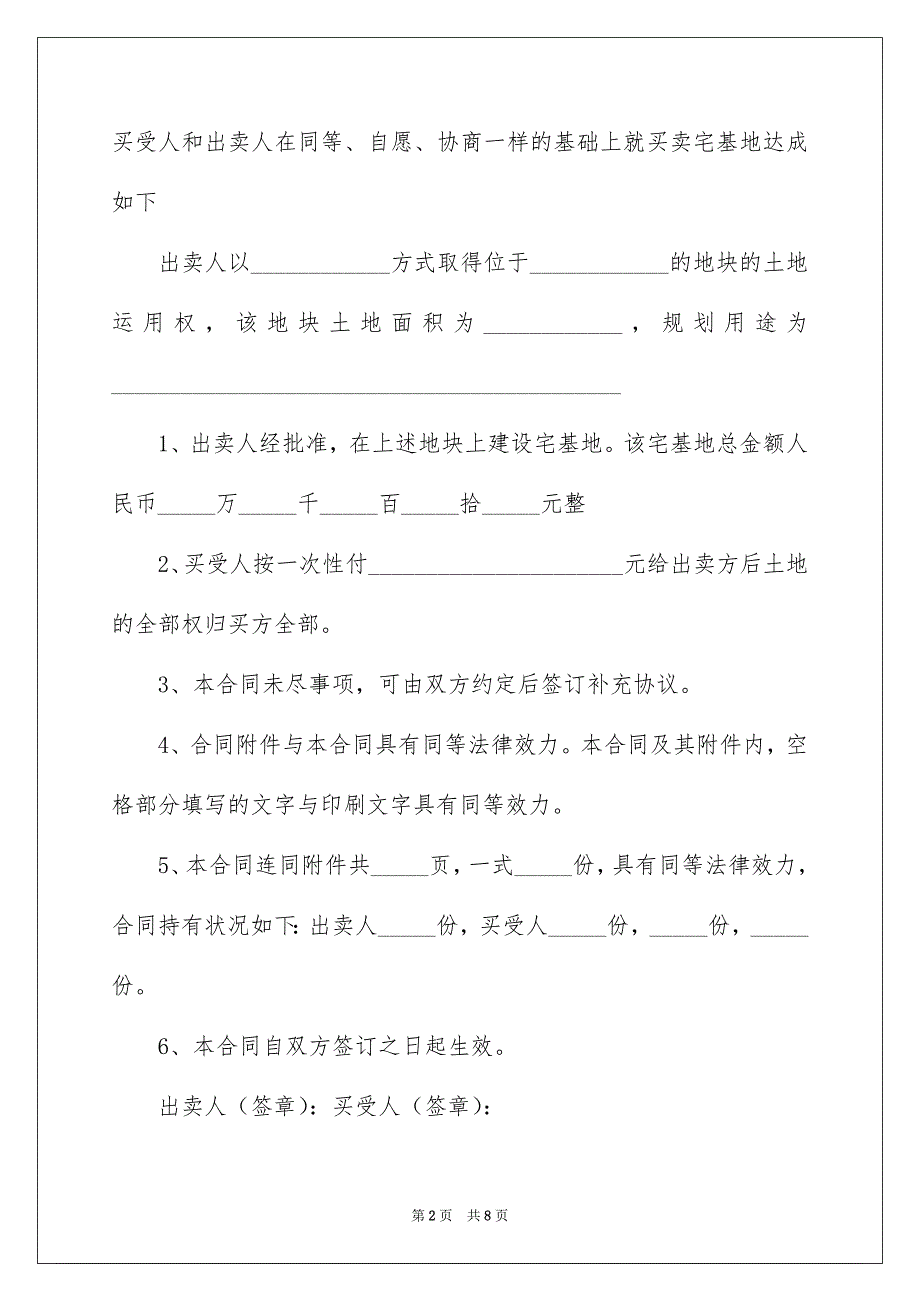 买受人和出卖人在同等、自愿、协商一样的基础上就买卖宅基地达成
如下
出卖人以____________方式取得位于____________的地块的土地
运用权，该地块土地面积为____________，规划用途为
____________________________________________
1、出卖人经批准，在上述地块上建设宅基地。该宅基地总金额人
民币_____万_____千_____百_____拾_____元整
2、买受人按一次性付______________________元给出卖方后土地
的全部权归买方全部。
3、本合同未尽事项，可由双方约定后签订补充协议。
4、合同附件与本合同具有同等法律效力。本合同及其附件内，空
格部分填写的文字与印刷文字具有同等效力。
5、本合同连同附件共_____页，一式_____份，具有同等法律效力，
合同持有状况如下：出卖人_____份，买受人_____份，_____份，_____
份。
6、本合同自双方签订之日起生效。
出卖人（签章）：买受人（签章）：
第 2 页 共 8 页